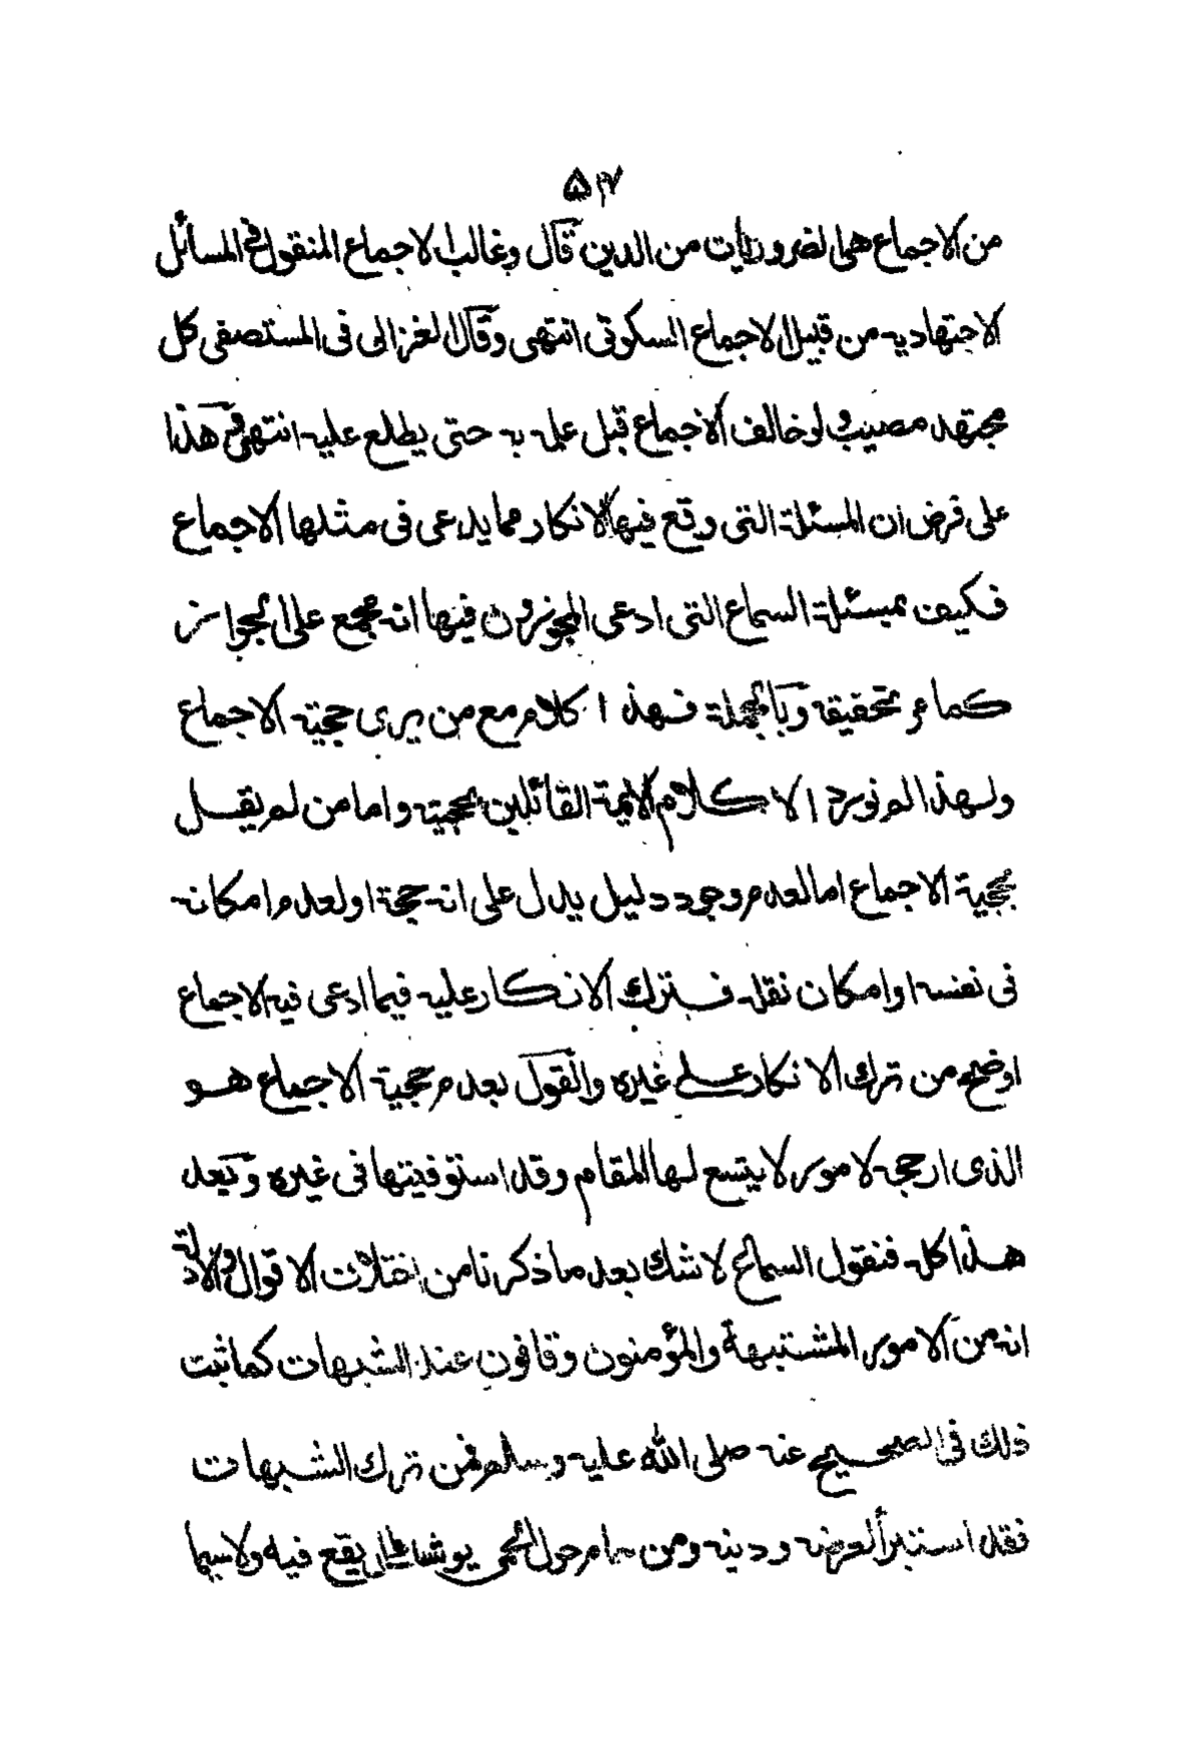 ۵۴
من الاجماع هى الضروريات من الدين قال وغالب الاجماع المنقول فى المسائل
الاجتهاديه من قبيل الاجماع السكوتى انتهى وقال الغزالى فى المستصفى كل
مجتهد مصيب ولو خالف الاجماع قبل عمله به حتى يطلع عليه انتهى هذا
على فرض ان المسئلة التى وقع فيها الانكار مما يدعى فى مثلها الاجماع
فكيف بمسئلة السماع التى ادعى المجوزون فيها انه مجمع على الجواز
كما مر تحقيقه وبالجملة فهذا كلام مع من يرى حجية الاجماع
ولهذا لم نورد الا كلام الائمة القائلين بحجيته واما من لم يقل
بحجية الاجماع اما لعدم وجود دليل يدل على انه حجة او لعدم امكانه
فى نفسه او امكان نقله فترك الانكار عليه فيما ادعى فيه الاجماع
اوضح من ترك الانكار على غيره والقول بعدم حجية الاجماع هو
الذى ارجحه لامور لا يتسع لها المقام وقد استوفيتها فى غيره وبعد
هذا كله فنقول السماع لا شك بعد ما ذكرنا من اختلاف الاقوال والادلة
انه من الامور المشتبهة والمؤمنون وقافون عند الشبهات كما ثبت
ذلك فى الصحيح عنه صلى الله عليه وسلم فمن ترك الشبهات
فقد استبرأ لعرضه ودينه ومن حام حول الحمى يوشك ان يقع فيه ولاسيما